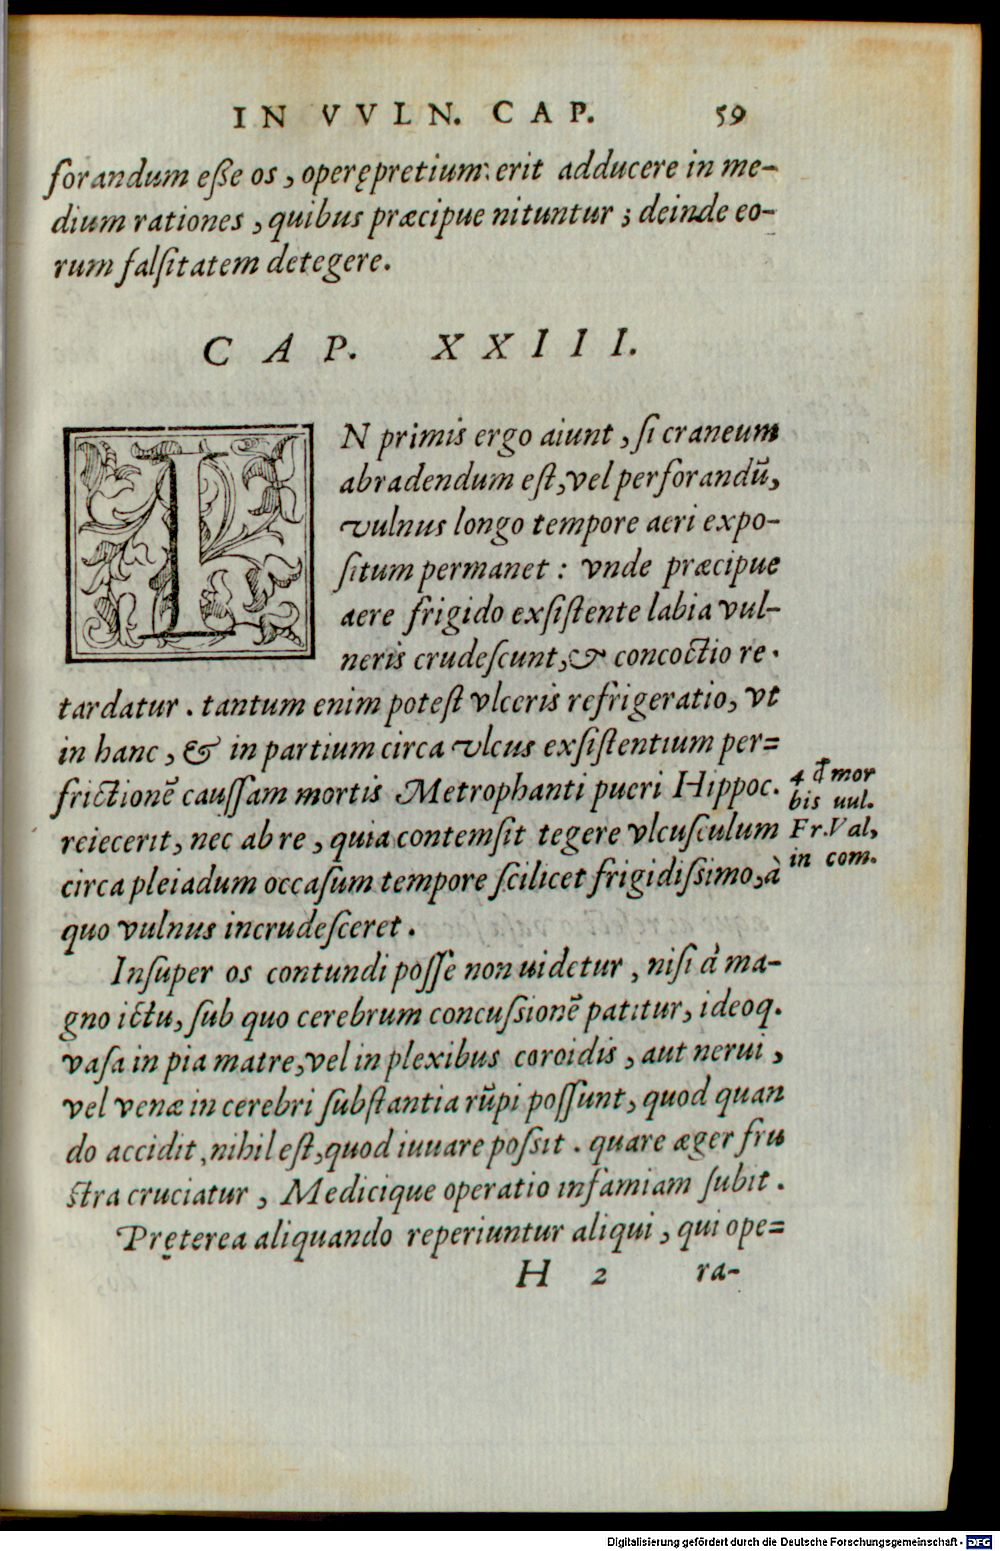 IN VVLN. CAP. 59
forandum eſſe os, operępretium erit adducere in me-
dium rationes, quibus præcipue nituntur; deinde eo-
rum falſitatem detegere.
CAP. XXIII.
IN primis ergo aiunt, ſi craneum
abradendum eſt, vel perforandū,
vulnus longo tempore aeri expo-
ſitum permanet: vnde præcipue
aere frigido exſiſtente labia vul-
neris crudeſcunt, & concoctio re-
tardatur. tantum enim poteſt vlceris refrigeratio, vt
in hanc, & in partium circa vlcus exſiſtentium per=
frictionē cauſſam mortis Metrophanti pueri Hippoc.
reiecerit, nec ab re, quia contemſit tegere vlcuſculum
circa pleiadum occaſum tempore ſcilicet frigidiſſimo, à
quo vulnus incrudeſceret.
4 đ mor
bis uul.
Fr. Val,
in com.
Inſuper os contundi poſſe non uidetur, niſi à ma-
gno ictu, ſub quo cerebrum concuſſionē patitur, ideoq.
vaſa in pia matre, vel in plexibus coroidis, aut nerui,
vel venæ in cerebri ſubſtantia rūpi poſſunt, quod quan
do accidit, nihil eſt, quod iuuare poſſit. quare æger fru
ſtra cruciatur, Medicique operatio infamiam ſubit.
Pręterea aliquando reperiuntur aliqui, qui ope=
H 2 ra-
Digitalisierung gefördert durch die Deutsche Forschungsgemeinschaft - DFG